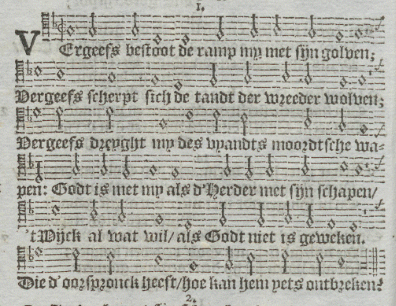 1.
VErgeefs bestoot de ramp my met sijn golven;
Vergeefs scherpt sich de tandt der wreeder wolven;
Vergeefs dreyght my des vyandts moordtsche wa-
pen: Godt is met my als d'Herder met sijn schapen/
't Wijck al wat wil/ als Godt niet is geweken.
Die d'oorspronck heeft/ hoe kan hem yets ontbreken?
2.